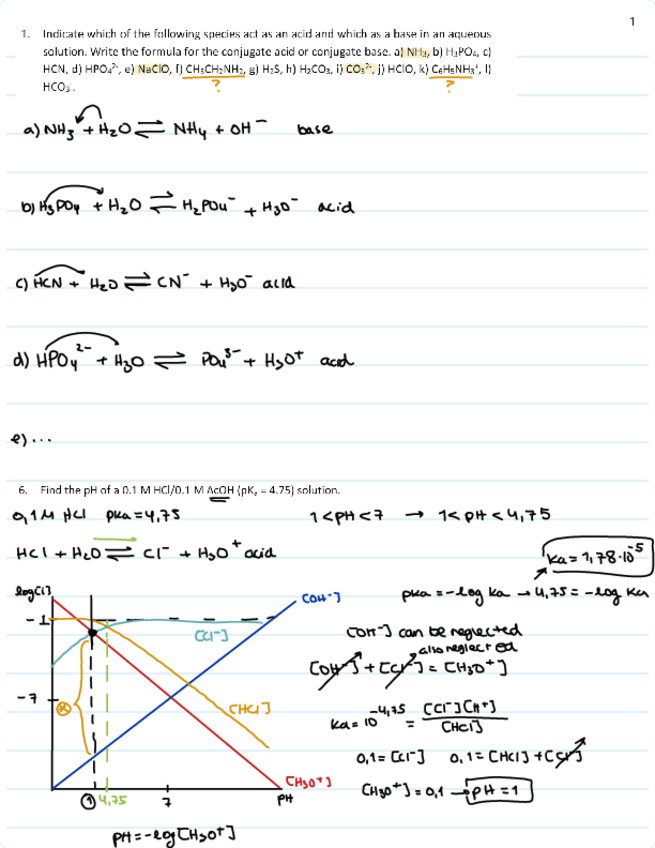 1
1. Indicate which of the following species act as an acid and which as a base in an aqueous
solution. Write the formula for the conjugate acid or conjugate base. a) NH₃, b) H₃PO₄, c)
HCN, d) HPO₄²⁻, e) NaClO, f) CH₃CH₂NH₂, g) H₂S, h) H₂CO₃, i) CO₃²⁻, j) HClO, k) C₆H₅NH₃⁺, l)
HCO₃⁻.
? ?
a) NH₃ + H₂O ⇌ NH₄ + OH⁻ base
b) H₃PO₄ + H₂O ⇌ H₂PO₄⁻ + H₃O⁻ acid
c) HCN + H₂O ⇌ CN⁻ + H₃O⁻ acid
d) HPO₄²⁻ + H₃O ⇌ PO₄³⁻ + H₃O⁺ acid
e) ...
6. Find the pH of a 0.1 M HCl/0.1 M AcOH (pKₐ = 4.75) solution.
0,1M HCl pka=4,75 1<pH<7 → 1<pH<4,75
HCl + H₂O ⇌ Cl⁻ + H₃O⁺ acid
Ka = 1,78·10⁻⁵
log[i]
pka = -log ka → 4,75 = -log ka
[OH⁻]
-1
[Cl⁻]
[OH⁻] can be neglected
also neglected
[OH⁻] + [Cl⁻] = [H₃O⁺]
-7
[HCl]
Ka = 10⁻⁴,⁷⁵ = [Cl⁻][H⁺]
[HCl]
0,1 = [Cl⁻] 0,1 = [HCl] + [Cl⁻]
[H₃O⁺]
[H₃O⁺] = 0,1 → pH = 1
1 4,75 7 pH
pH = -log[H₃O⁺]